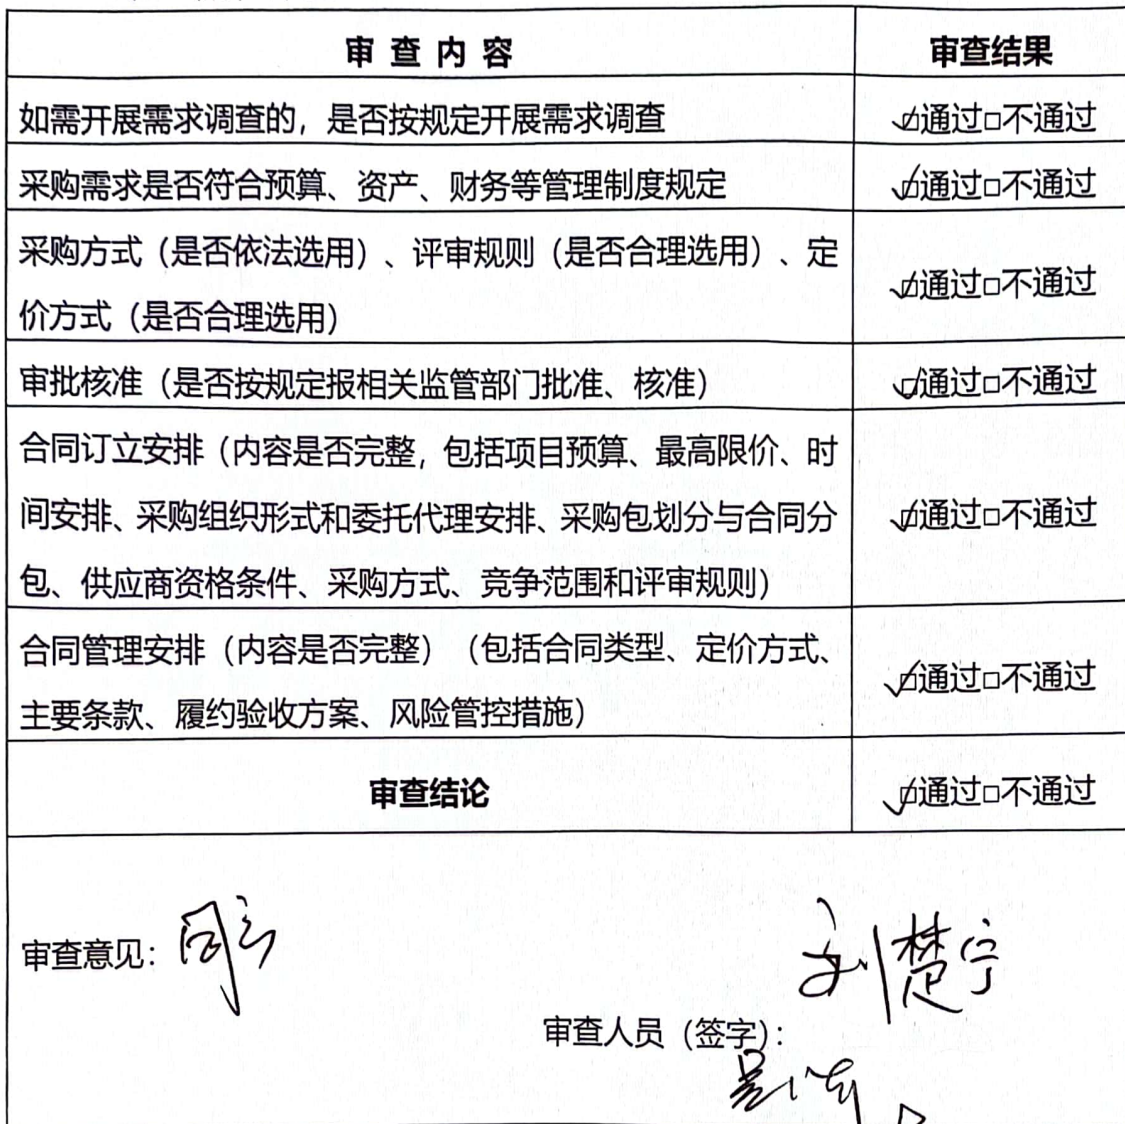 审查内容 审查结果
如需开展需求调查的，是否按规定开展需求调查 ☑通过□不通过
采购需求是否符合预算、资产、财务等管理制度规定 ☑通过□不通过
采购方式（是否依法选用）、评审规则（是否合理选用）、定
价方式（是否合理选用） ☑通过□不通过
审批核准（是否按规定报相关监管部门批准、核准） ☑通过□不通过
合同订立安排（内容是否完整，包括项目预算、最高限价、时
间安排、采购组织形式和委托代理安排、采购包划分与合同分 ☑通过□不通过
包、供应商资格条件、采购方式、竞争范围和评审规则）
合同管理安排（内容是否完整）（包括合同类型、定价方式、 ☑通过□不通过
主要条款、履约验收方案、风险管控措施）
审查结论 ☑通过□不通过
审查意见：同意
刘楚宁
审查人员（签字）：